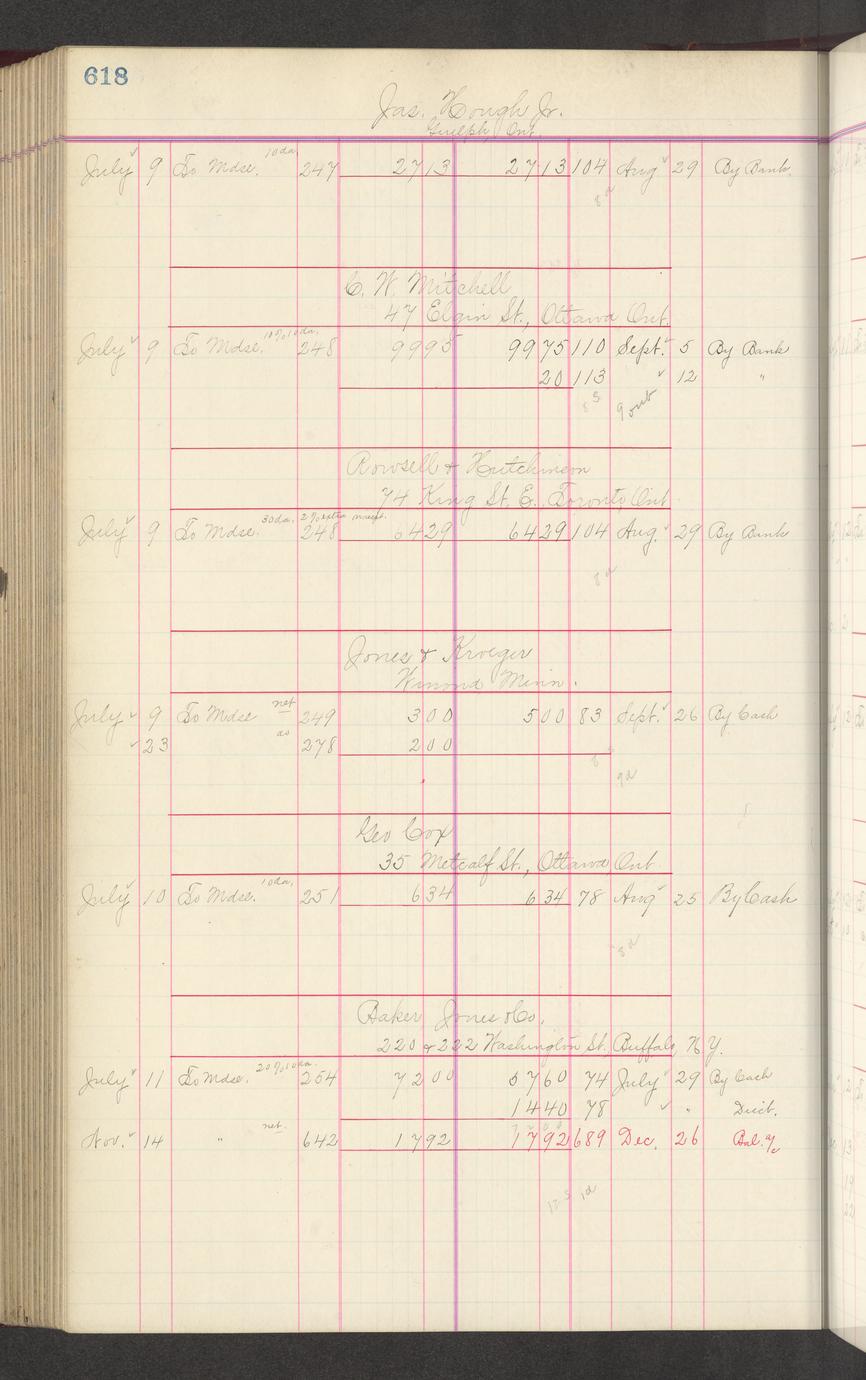 618
Jas. Hough Jr.
Guelph, Ont.
July 9 To Mdse. 10 da. 247 27 13 27 13 104 Aug 29 By Bank
C. W. Mitchell
47 Elgin St., Ottawa Ont.
July 9 To Mdse. 10% 10 da. 248 99 95 99 75 110 Sept. 5 By Bank
20 113 12 "
9 out
Rowsell & Hutchinson
74 King St. E. Toronto Ont
July 9 To Mdse. 30 da. 2% extra 248 64 29 64 29 104 Aug. 29 By Bank
Jones & Kroeger
Winona Minn.
July 9 To Mdse net 249 3 00 5 00 83 Sept. 26 By Cash
23 as 278 2 00
Geo Cox
35 Metcalf St., Ottawa Ont
July 10 To Mdse. 10 da. 251 6 34 6 34 78 Aug 25 By Cash
Baker, Jones & Co.
220 & 222 Washington St. Buffalo, N. Y.
July 11 To Mdse. 20% 10 da. 254 72 00 57 60 74 July 29 By Cash
14 40 78 " Disct.
Nov. 14 " net. 642 17 92 17 92 689 Dec. 26 Bal. a/c